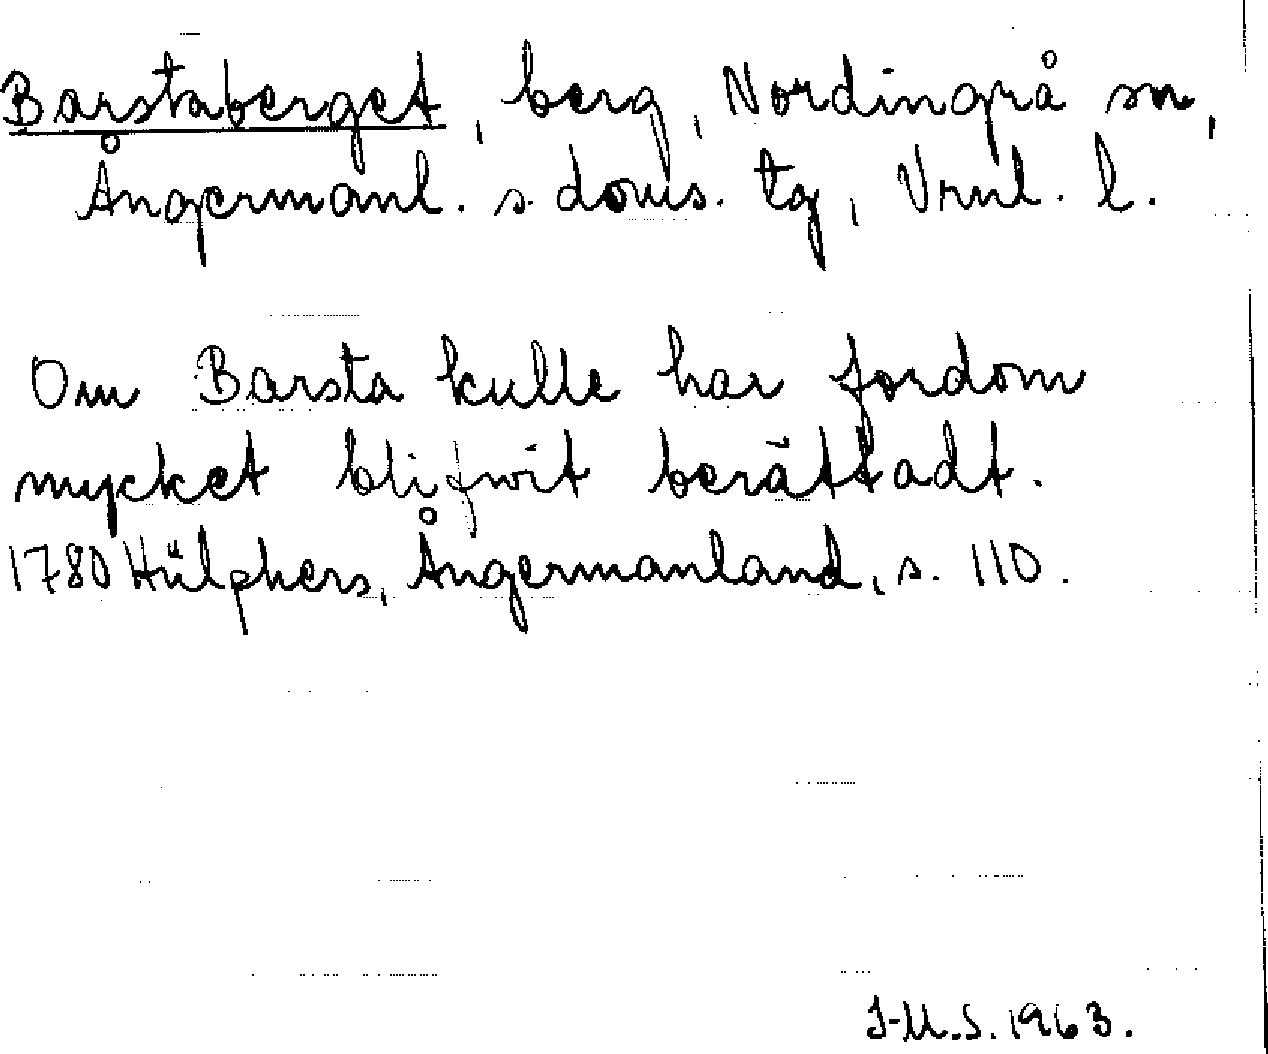 Barstaberget, berg, Nordingrå sn,
Ångermanl. s. doms. tg, Vrnl. l.
Om Barsta kulle har fordom
mycket blifwit berättadt.
1780 Hülphers, Ångermanland, s. 110.
I-M.S. 1963.